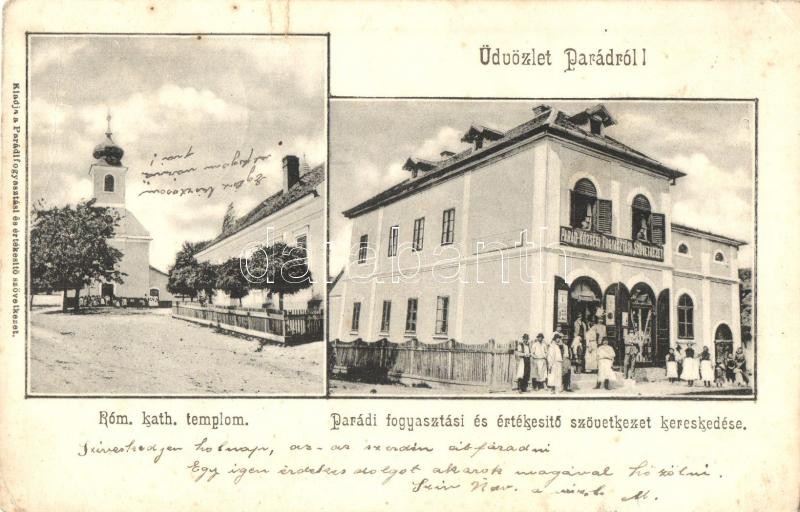 Üdvözlet Parádról!
Kiadja a Parádifogyasztási és értékesitő szövetkezet.
PARÁD-KÖZSÉGI FOGYASZTÁSI SZÖVETKEZET
darabanth
Róm. kath. templom.
Parádi fogyasztási és értékesitő szövetkezet kereskedése.
Sziveskedjen holnap, az-az szerdán átfáradni
Egy igen érdekes dolgot akarok magával közölni.